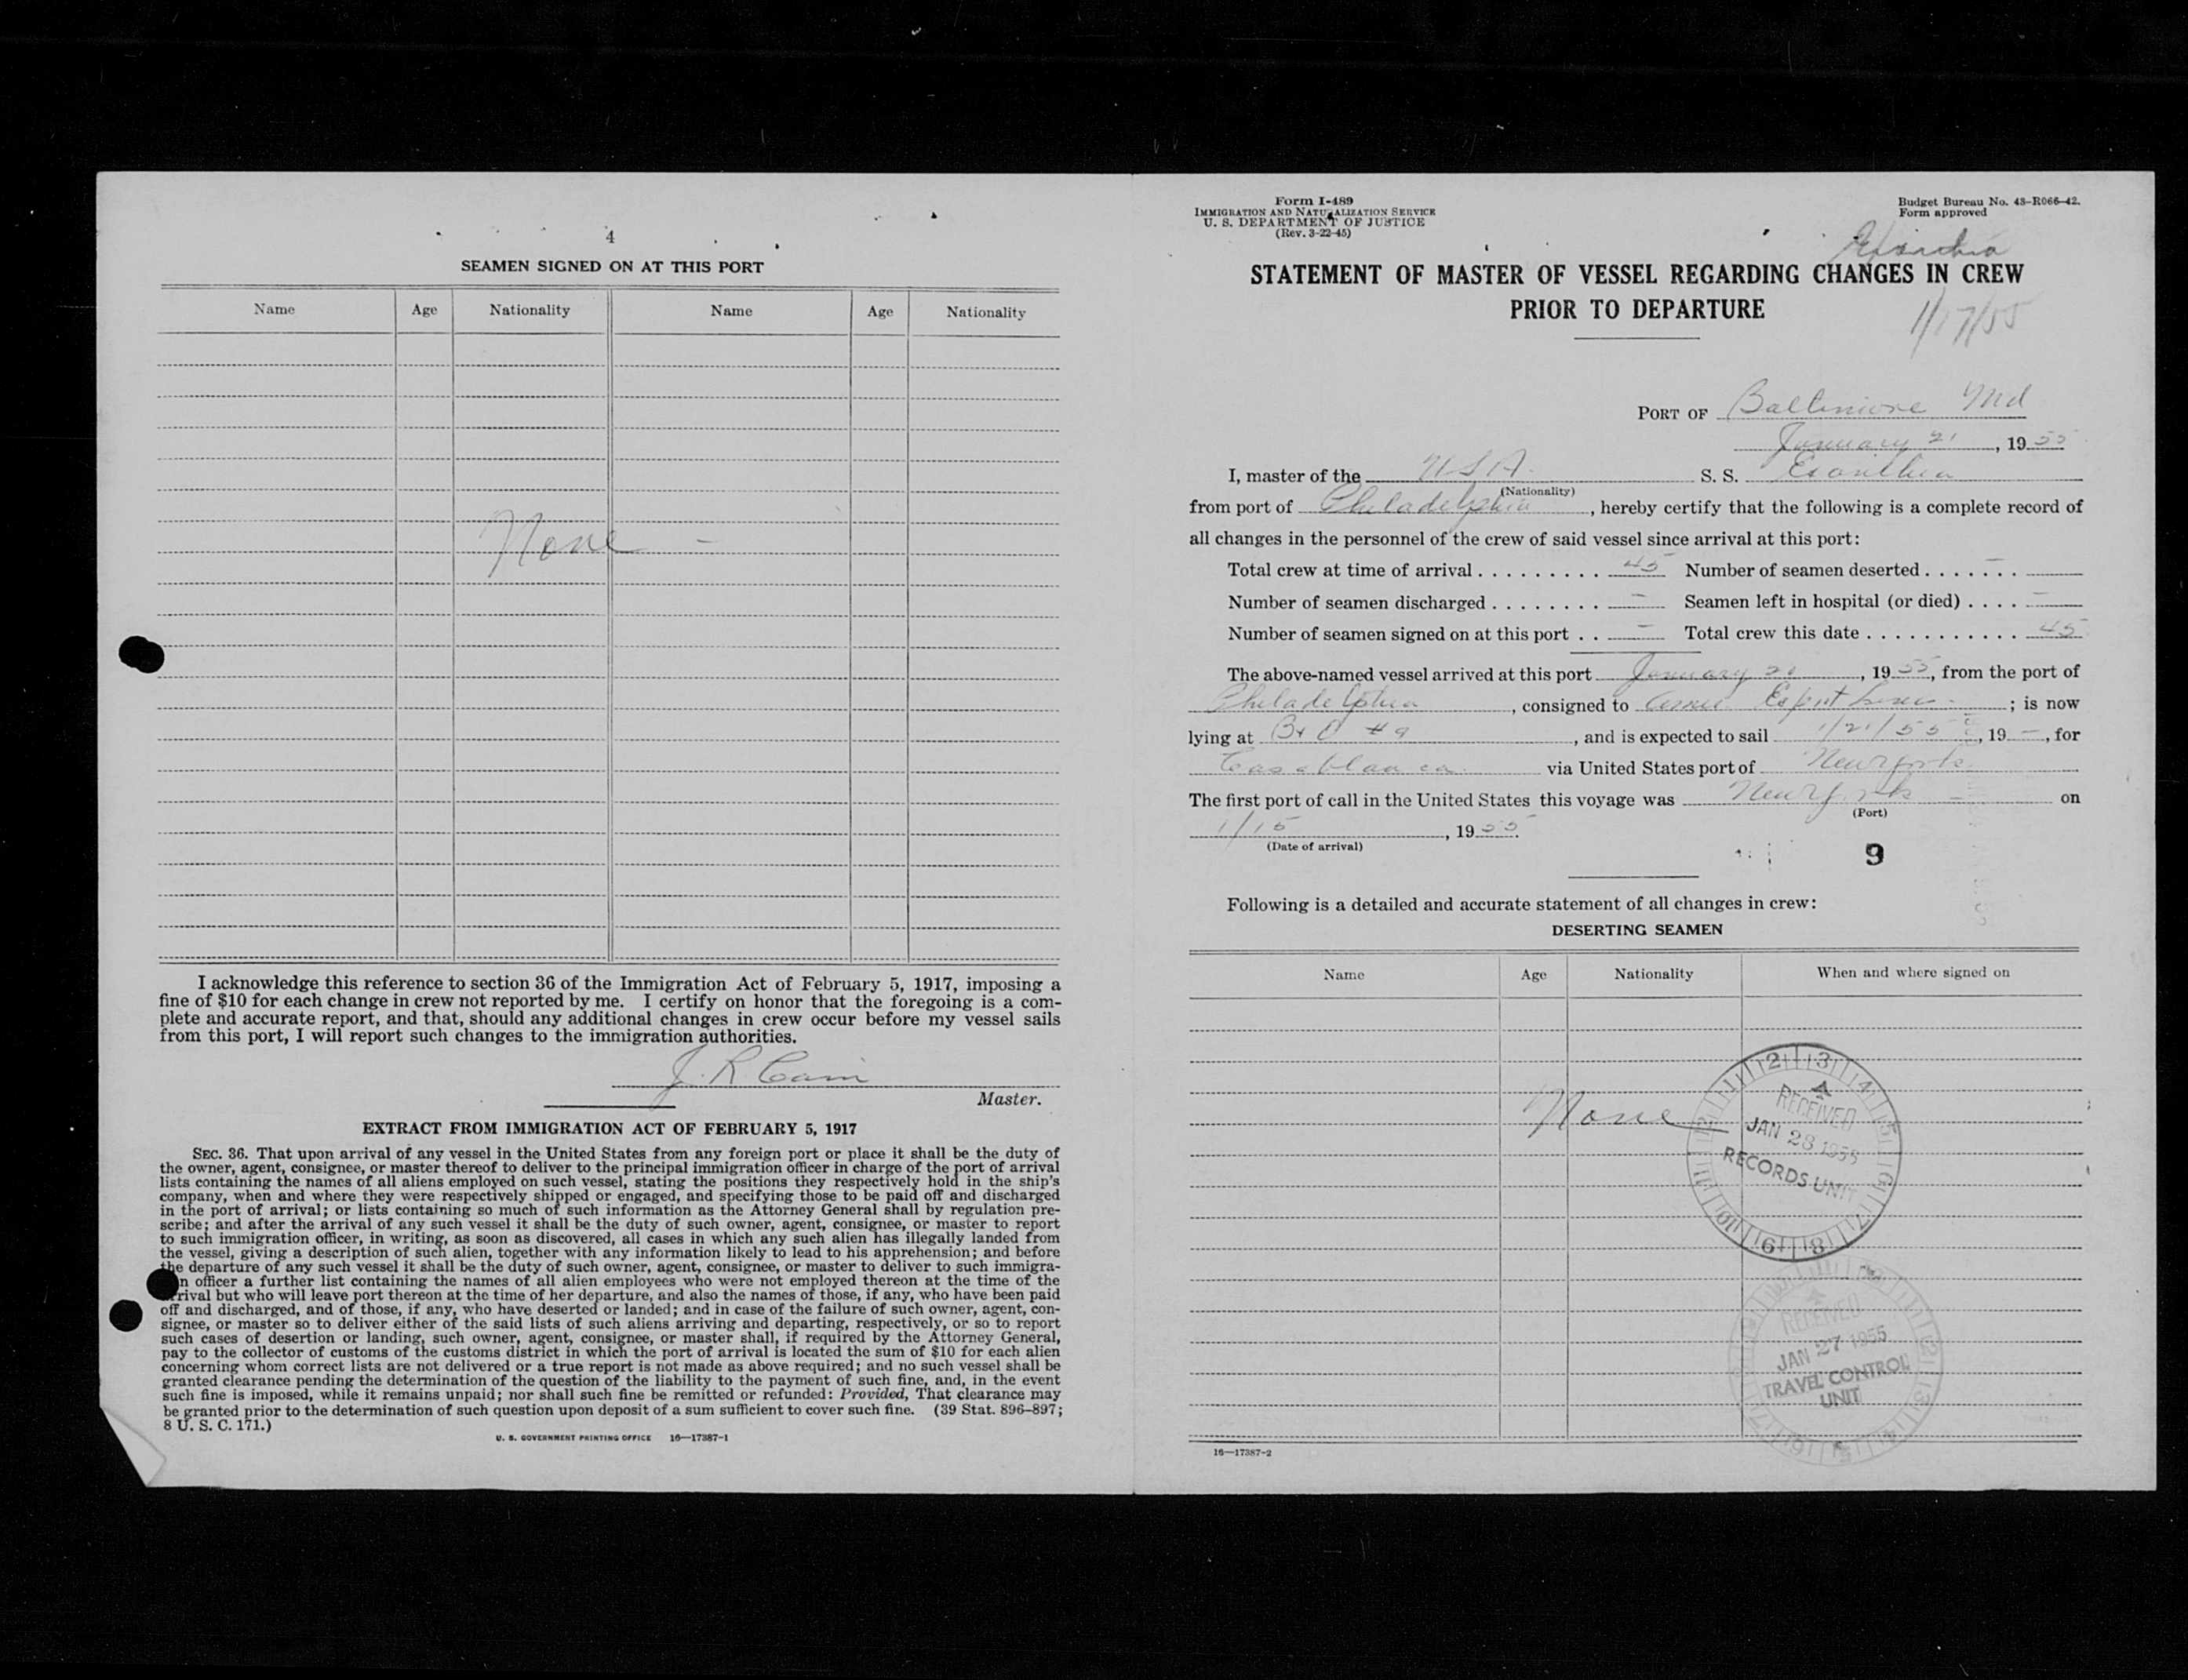 4
SEAMEN SIGNED ON AT THIS PORT
Name Age Nationality Name Age Nationality
None -
I acknowledge this reference to section 36 of the Immigration Act of February 5, 1917, imposing a
fine of $10 for each change in crew not reported by me. I certify on honor that the foregoing is a com-
plete and accurate report, and that, should any additional changes in crew occur before my vessel sails
from this port, I will report such changes to the immigration authorities.
J. R. Cain
Master.
EXTRACT FROM IMMIGRATION ACT OF FEBRUARY 5, 1917
SEC. 36. That upon arrival of any vessel in the United States from any foreign port or place it shall be the duty of
the owner, agent, consignee, or master thereof to deliver to the principal immigration officer in charge of the port of arrival
lists containing the names of all aliens employed on such vessel, stating the positions they respectively hold in the ship's
company, when and where they were respectively shipped or engaged, and specifying those to be paid off and discharged
in the port of arrival; or lists containing so much of such information as the Attorney General shall by regulation pre-
scribe; and after the arrival of any such vessel it shall be the duty of such owner, agent, consignee, or master to report
to such immigration officer, in writing, as soon as discovered, all cases in which any such alien has illegally landed from
the vessel, giving a description of such alien, together with any information likely to lead to his apprehension; and before
the departure of any such vessel it shall be the duty of such owner, agent, consignee, or master to deliver to such immigra-
n officer a further list containing the names of all alien employees who were not employed thereon at the time of the
rival but who will leave port thereon at the time of her departure, and also the names of those, if any, who have been paid
off and discharged, and of those, if any, who have deserted or landed; and in case of the failure of such owner, agent, con-
signee, or master so to deliver either of the said lists of such aliens arriving and departing, respectively, or so to report
such cases of desertion or landing, such owner, agent, consignee, or master shall, if required by the Attorney General,
pay to the collector of customs of the customs district in which the port of arrival is located the sum of $10 for each alien
concerning whom correct lists are not delivered or a true report is not made as above required; and no such vessel shall be
granted clearance pending the determination of the question of the liability to the payment of such fine, and, in the event
such fine is imposed, while it remains unpaid; nor shall such fine be remitted or refunded: Provided, That clearance may
be granted prior to the determination of such question upon deposit of a sum sufficient to cover such fine. (39 Stat. 896-897;
8 U. S. C. 171.)
U. S. GOVERNMENT PRINTING OFFICE 16—17387-1
Form I-489
IMMIGRATION AND NATURALIZATION SERVICE
U. S. DEPARTMENT OF JUSTICE
(Rev. 3-22-45)
Budget Bureau No. 43-R066-42.
Form approved
STATEMENT OF MASTER OF VESSEL REGARDING CHANGES IN CREW
PRIOR TO DEPARTURE
1/17/55
PORT OF Baltimore Md
January 21, 1955
I, master of the USA S. S. Exanthia
(Nationality)
from port of Philadelphia, hereby certify that the following is a complete record of
all changes in the personnel of the crew of said vessel since arrival at this port:
Total crew at time of arrival . . . . . . . . . 45 Number of seamen deserted . . . . . . . -
Number of seamen discharged . . . . . . . . - Seamen left in hospital (or died) . . . . -
Number of seamen signed on at this port . . - Total crew this date . . . . . . . . . . . 45
The above-named vessel arrived at this port January 20, 1955, from the port of
Philadelphia, consigned to Amer Export Lines; is now
lying at B+O #9, and is expected to sail 1/21/55, 19 -, for
Casablanca via United States port of New York
The first port of call in the United States this voyage was New York on
(Port)
1/15, 1955.
(Date of arrival)
9
Following is a detailed and accurate statement of all changes in crew:
DESERTING SEAMEN
Name Age Nationality When and where signed on
None
RECEIVED
JAN 28 1955
RECORDS UNIT
RECEIVED
JAN 27 1955
TRAVEL CONTROL
UNIT
16—17387-2